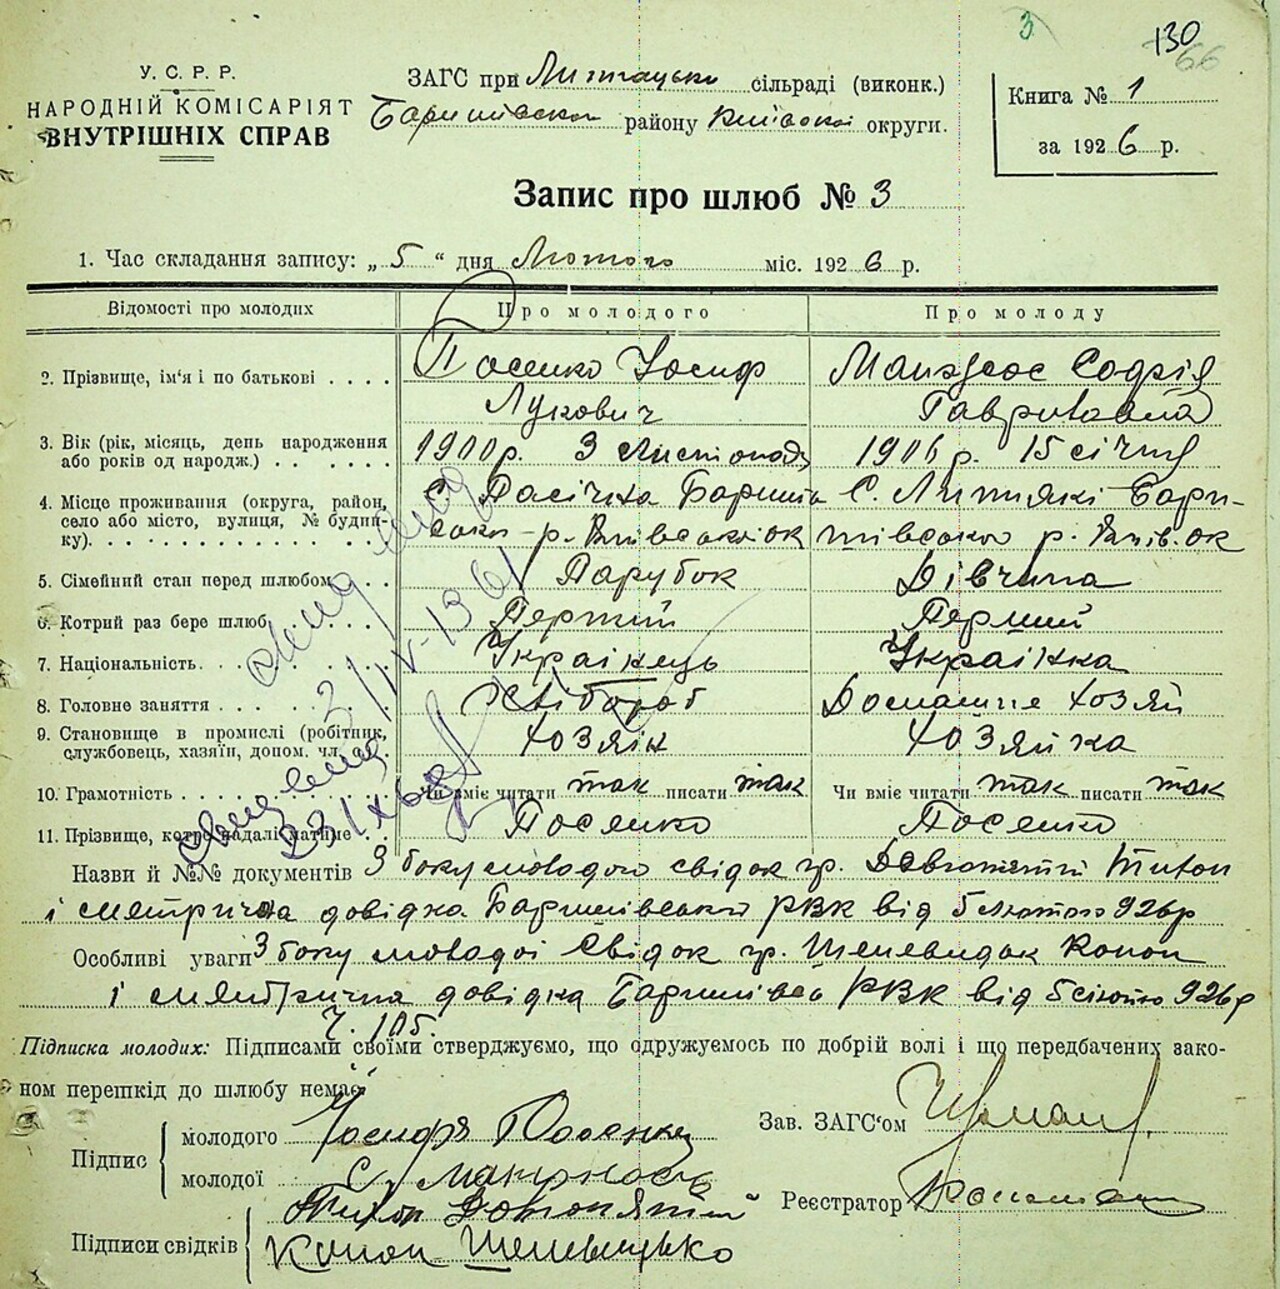 3
130
66
У. С. Р. Р.
НАРОДНІЙ КОМІСАРІЯТ
ВНУТРІШНІХ СПРАВ
ЗАГС при сільраді (виконк.)
Баришівської району Київської округи.
Книга № 1
за 1926 р.
Запис про шлюб № 3
1. Час складання запису: „5“ дня Лютого міс. 1926 р.
Відомості про молодих
Про молодого
Про молоду
2. Прізвище, ім'я і по батькові
Посенко Йосиф
Лукович
Софія
Гавриловна
3. Вік (рік, місяць, день народження
або років од народж.)
1900 р. 3 Листопада
1906 р. 15 січня
4. Місце проживання (округа, район,
село або місто, вулиця, № будин-
ку).
С. Пасічна Баришів
ської р. Київської ок
С. Лихняки Бари-
шівського р. Київ. ок
5. Сімейний стан перед шлюбом
Парубок
Дівчина
6. Котрий раз бере шлюб
Перший
Перший
7. Національність
Українець
Українка
8. Головне заняття
Хлібороб
Домашнє хозяй
9. Становище в промислі (робітник,
службовець, хазяїн, допом. чл. с.)
хозяїн
хозяйка
10. Грамотність
Чи вміє читати так писати так
Чи вміє читати так писати так
11. Прізвище, котре надалі матиме
Посенко
Посенко
Назви й №№ документів З боку молодого свідок гр. Тихон
і метрична довідка Баришівської РВК від 5 лютого 926р
Особливі уваги З боку молодої свідок гр. Конон
і метрична довідка Баришівсь РВК від 5 лютого 926р
Ч. 105.
Підписка молодих: Підписами своїми стверджуємо, що одружуємось по добрій волі і що передбачених зако-
ном перешкід до шлюбу немає
Підпис
молодого Посенко
молодої С.
Підписи свідків Тихон
Конон
Зав. ЗАГС'ом
Реєстратор